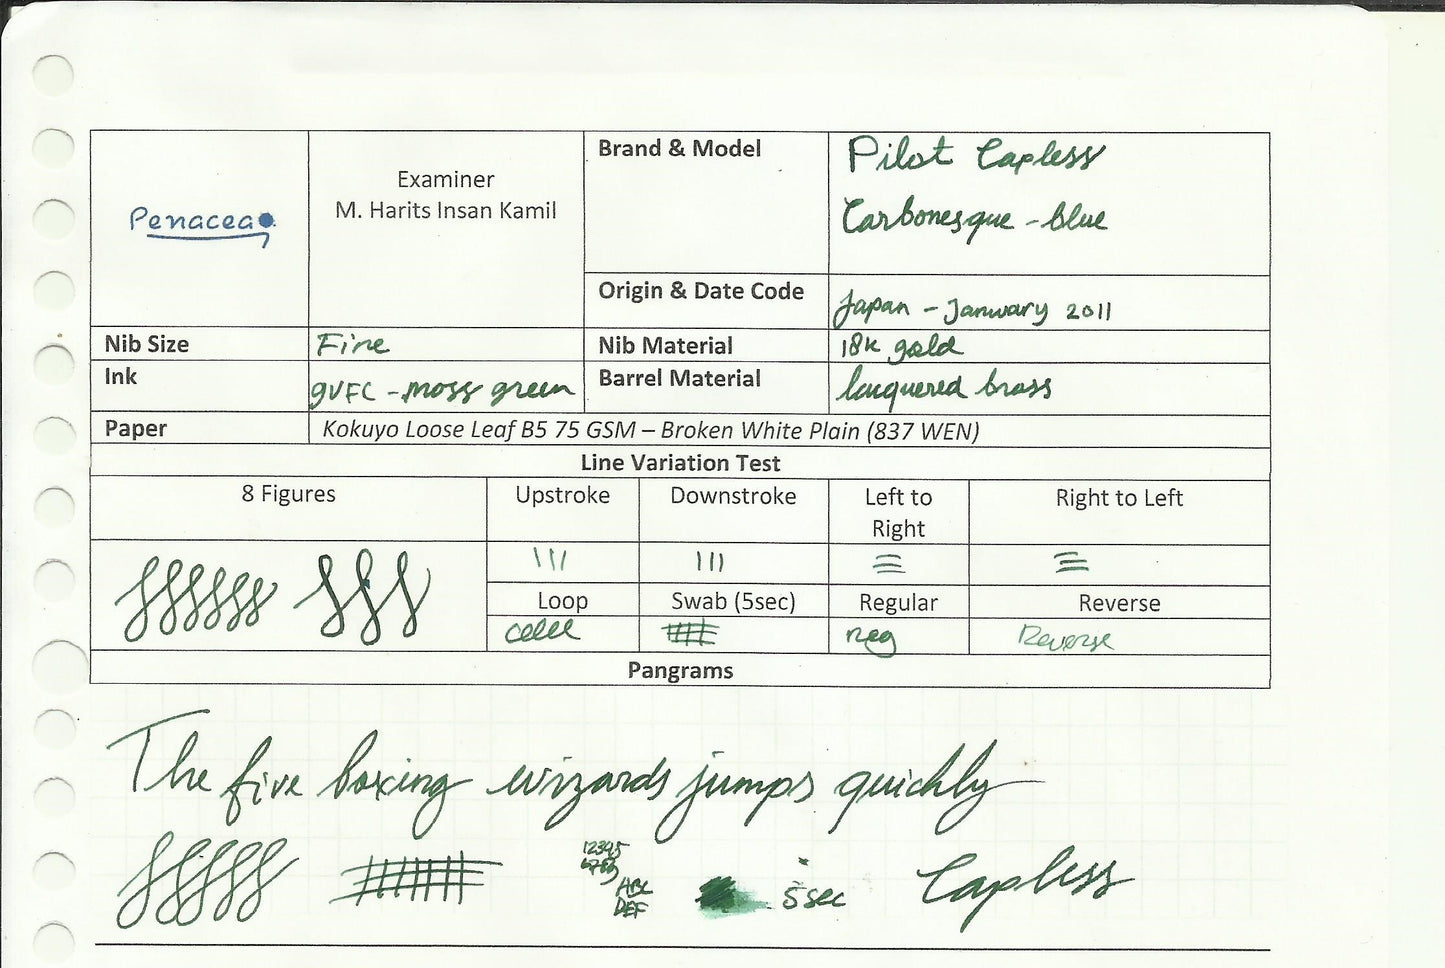 Penacea
Examiner
M. Harits Insan Kamil
Brand & Model
Pilot Capless
Carbonesque - blue
Origin & Date Code
Japan - January 2011
Nib Size
Fine
Nib Material
18k gold
Ink
GVFC - moss green
Barrel Material
lacquered brass
Paper
Kokuyo Loose Leaf B5 75 GSM – Broken White Plain (837 WEN)
Line Variation Test
8 Figures
Upstroke
Downstroke
Left to
Right
Right to Left
Loop
Swab (5sec)
Regular
Reverse
reg
Reverse
Pangrams
The five boxing wizards jumps quickly
12345
6789
ABC
DEF
5sec
Capless